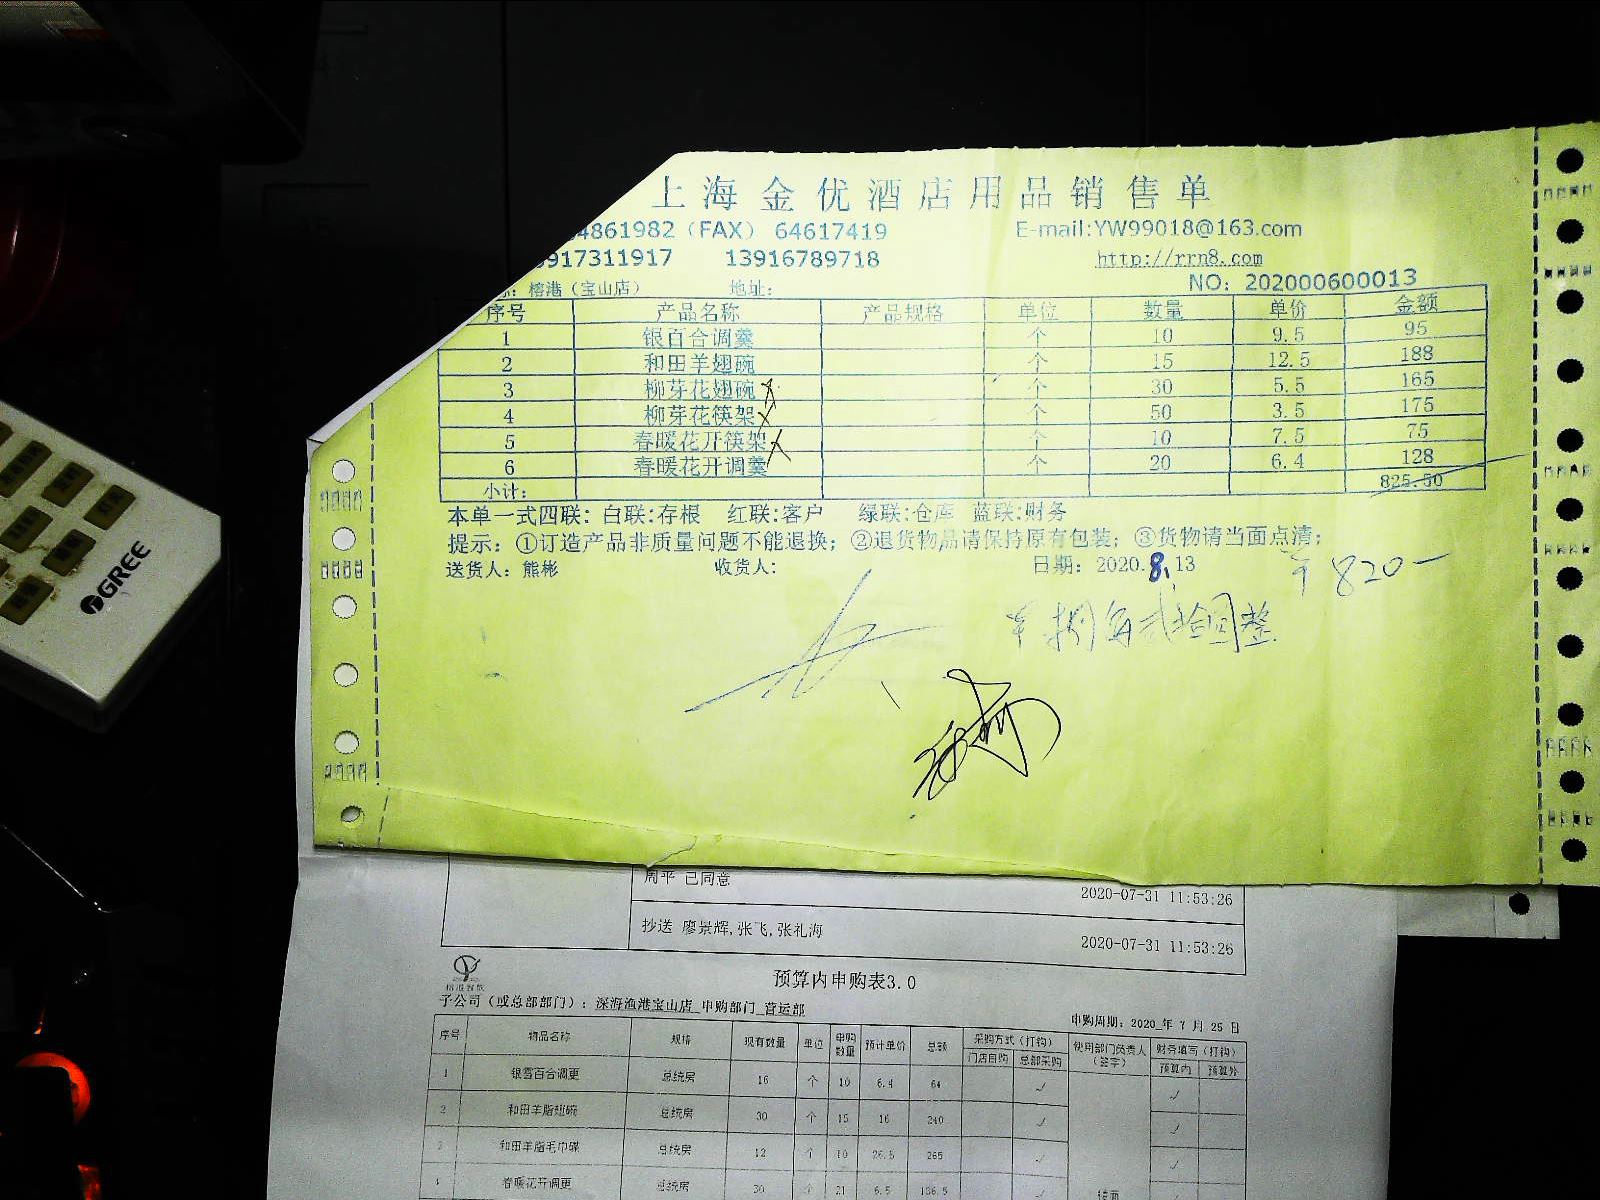 上海金优酒店用品销售单
4861982（FAX） 64617419 E-mail:YW99018@163.com
917311917 13916789718 http://rrn8.com
榕港（宝山店） 地址: NO: 202000600013
序号 产品名称 产品规格 单位 数量 单价 金额
1 银百合调羹 个 10 9.5 95
2 和田羊翅碗 个 15 12.5 188
3 柳芽花翅碗 个 30 5.5 165
4 柳芽花筷架 个 50 3.5 175
5 春暖花开筷架 个 10 7.5 75
6 春暖花开调羹 个 20 6.4 128
小计: 825.50
本单一式四联: 白联:存根 红联:客户 绿联:仓库 蓝联:财务
提示: ①订造产品非质量问题不能退换; ②退货物品请保持原有包装; ③货物请当面点清;
送货人: 熊彬 收货人: 日期: 2020.8.13 ¥820-
捌佰贰拾圆整
GREE
周平 已同意 2020-07-31 11:53:26
抄送 廖景辉,张飞,张礼海 2020-07-31 11:53:26
预算内申购表3.0
子公司（或总部部门）: 深海渔港宝山店_申购部门_营运部 申购周期: 2020 年 7 月 25 日
序号 物品名称 规格 现有数量 单位 申购数量 预计单价 总额 采购方式（打钩） 使用部门负责人（签字） 财务填写（打钩）
门店自购 总部采购 预算内 预算外
1 银雪百合调更 总统房 16 个 10 6.4 64 ✓ ✓
2 和田羊脂翅碗 总统房 30 个 15 16 240 ✓ ✓
3 和田羊脂毛巾碟 总统房 12 个 10 26.5 265 ✓ ✓
4 春暖花开调更 总统房 30 个 21 6.5 136.5 ✓